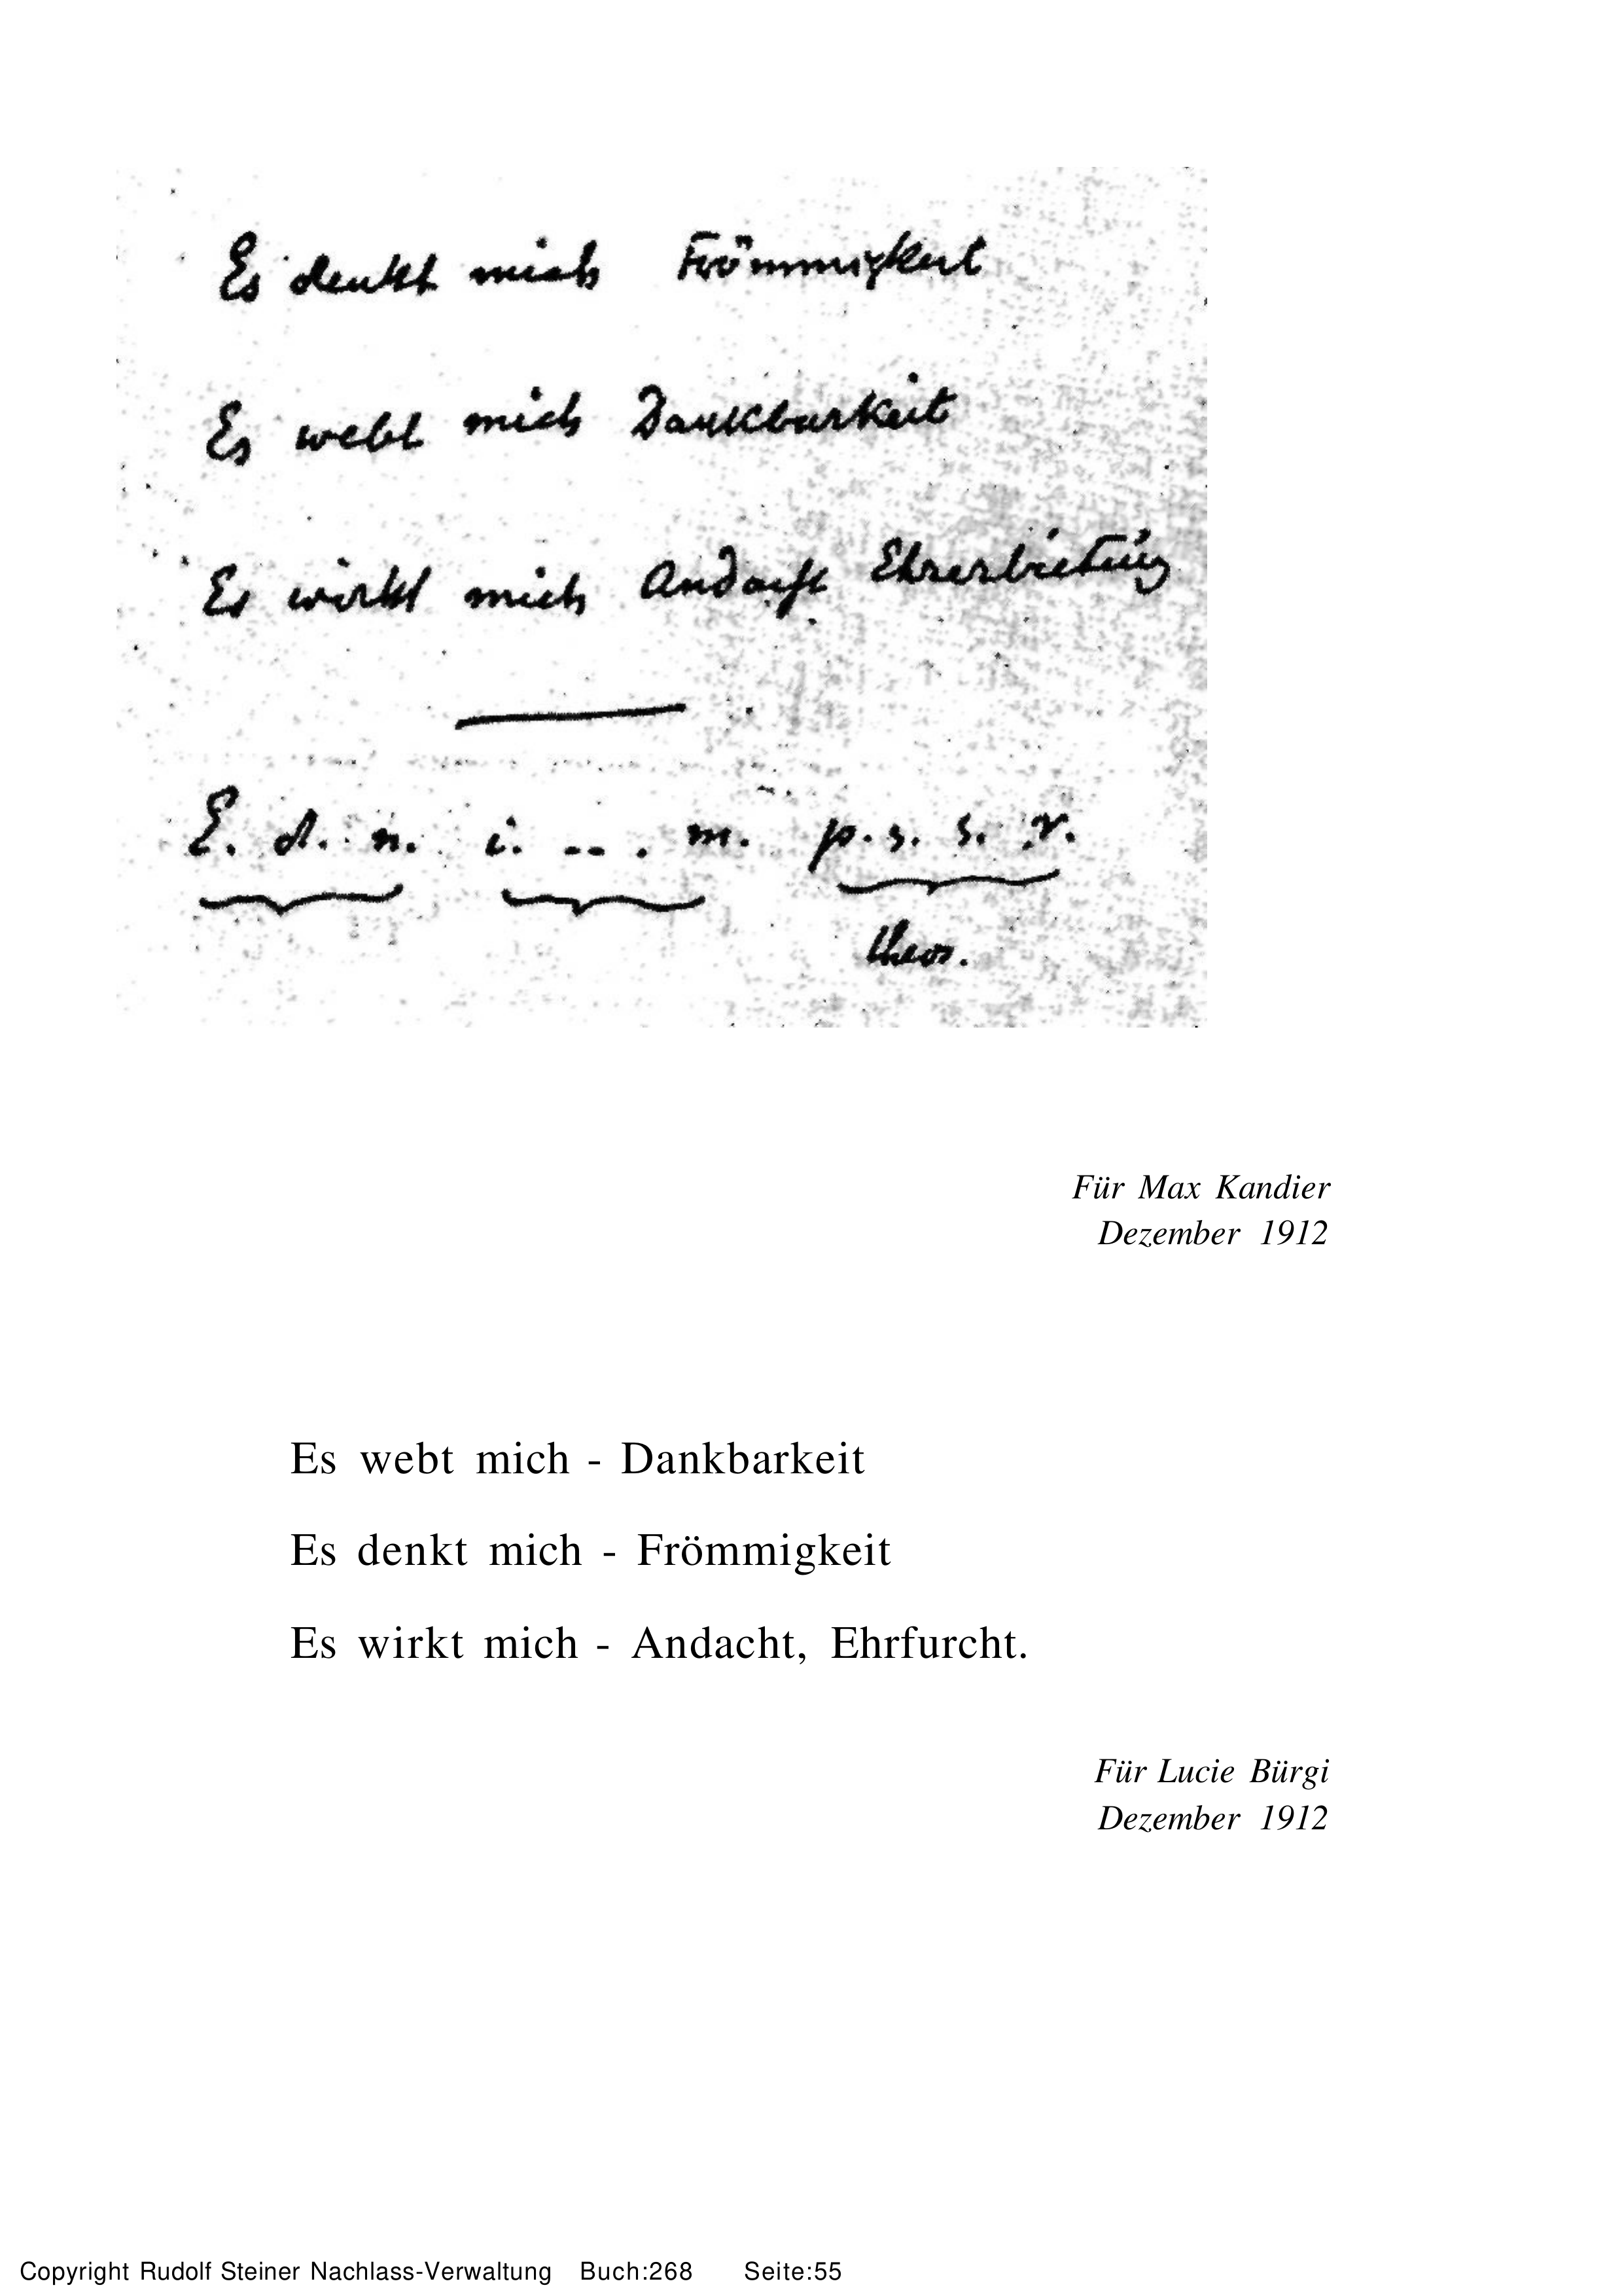 Es denkt mich Frömmigkeit
Es webt mich Dankbarkeit
Es wirkt mich Andacht Ehrerbietung
E. d. n. i. -- . m. p. s. s. r.
theos.
Für Max Kandier
Dezember 1912
Es webt mich - Dankbarkeit
Es denkt mich - Frömmigkeit
Es wirkt mich - Andacht, Ehrfurcht.
Für Lucie Bürgi
Dezember 1912
Copyright Rudolf Steiner Nachlass-Verwaltung Buch:268 Seite:55